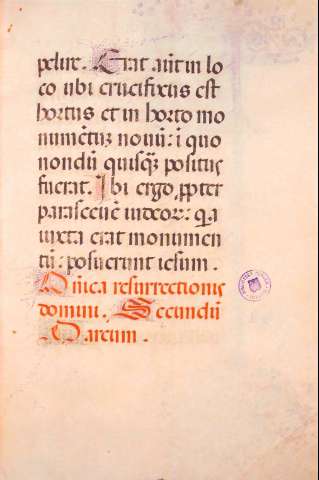 pelire. Erat aūt in lo
co ubi crucifixus est
hortus et in horto mo
numētuz nouū: ī quo
nondū quisqz positus
fuerat. Ibi ergo ꝓpter
parasceuē iudeoꝝ: q̄a
iuxta erat monumen
tū: posuerunt iesum.
Dn̄ica resurrectionis
domini. Secundū
Marcum.